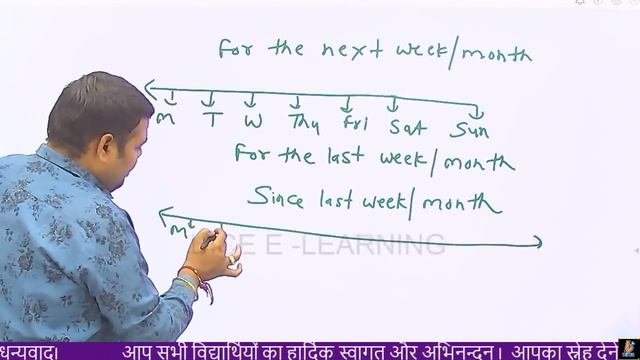 For the next week/month
M T W Thu Fri Sat Sun
For the last week/month
Since last week/month
M
CE E -LEARNING
धन्यवाद। आप सभी विद्यार्थियों का हार्दिक स्वागत और अभिनन्दन। आपका स्नेह देने